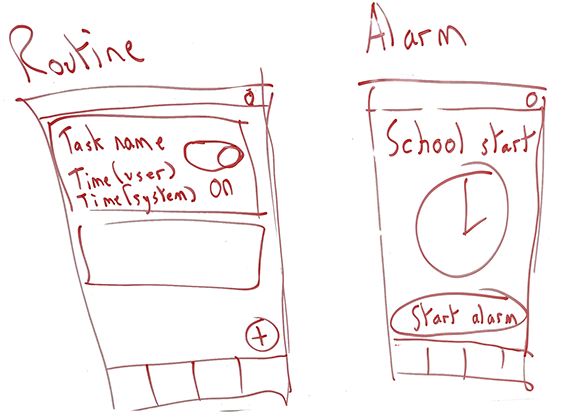 Routine
Alarm
Task name
Time(user)
Time(system)
On
+
School start
Start alarm